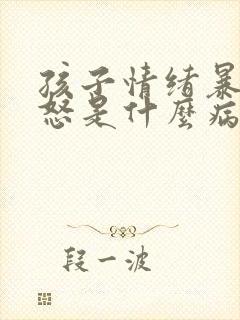 孩子情绪暴
怒是什麼病
段一波